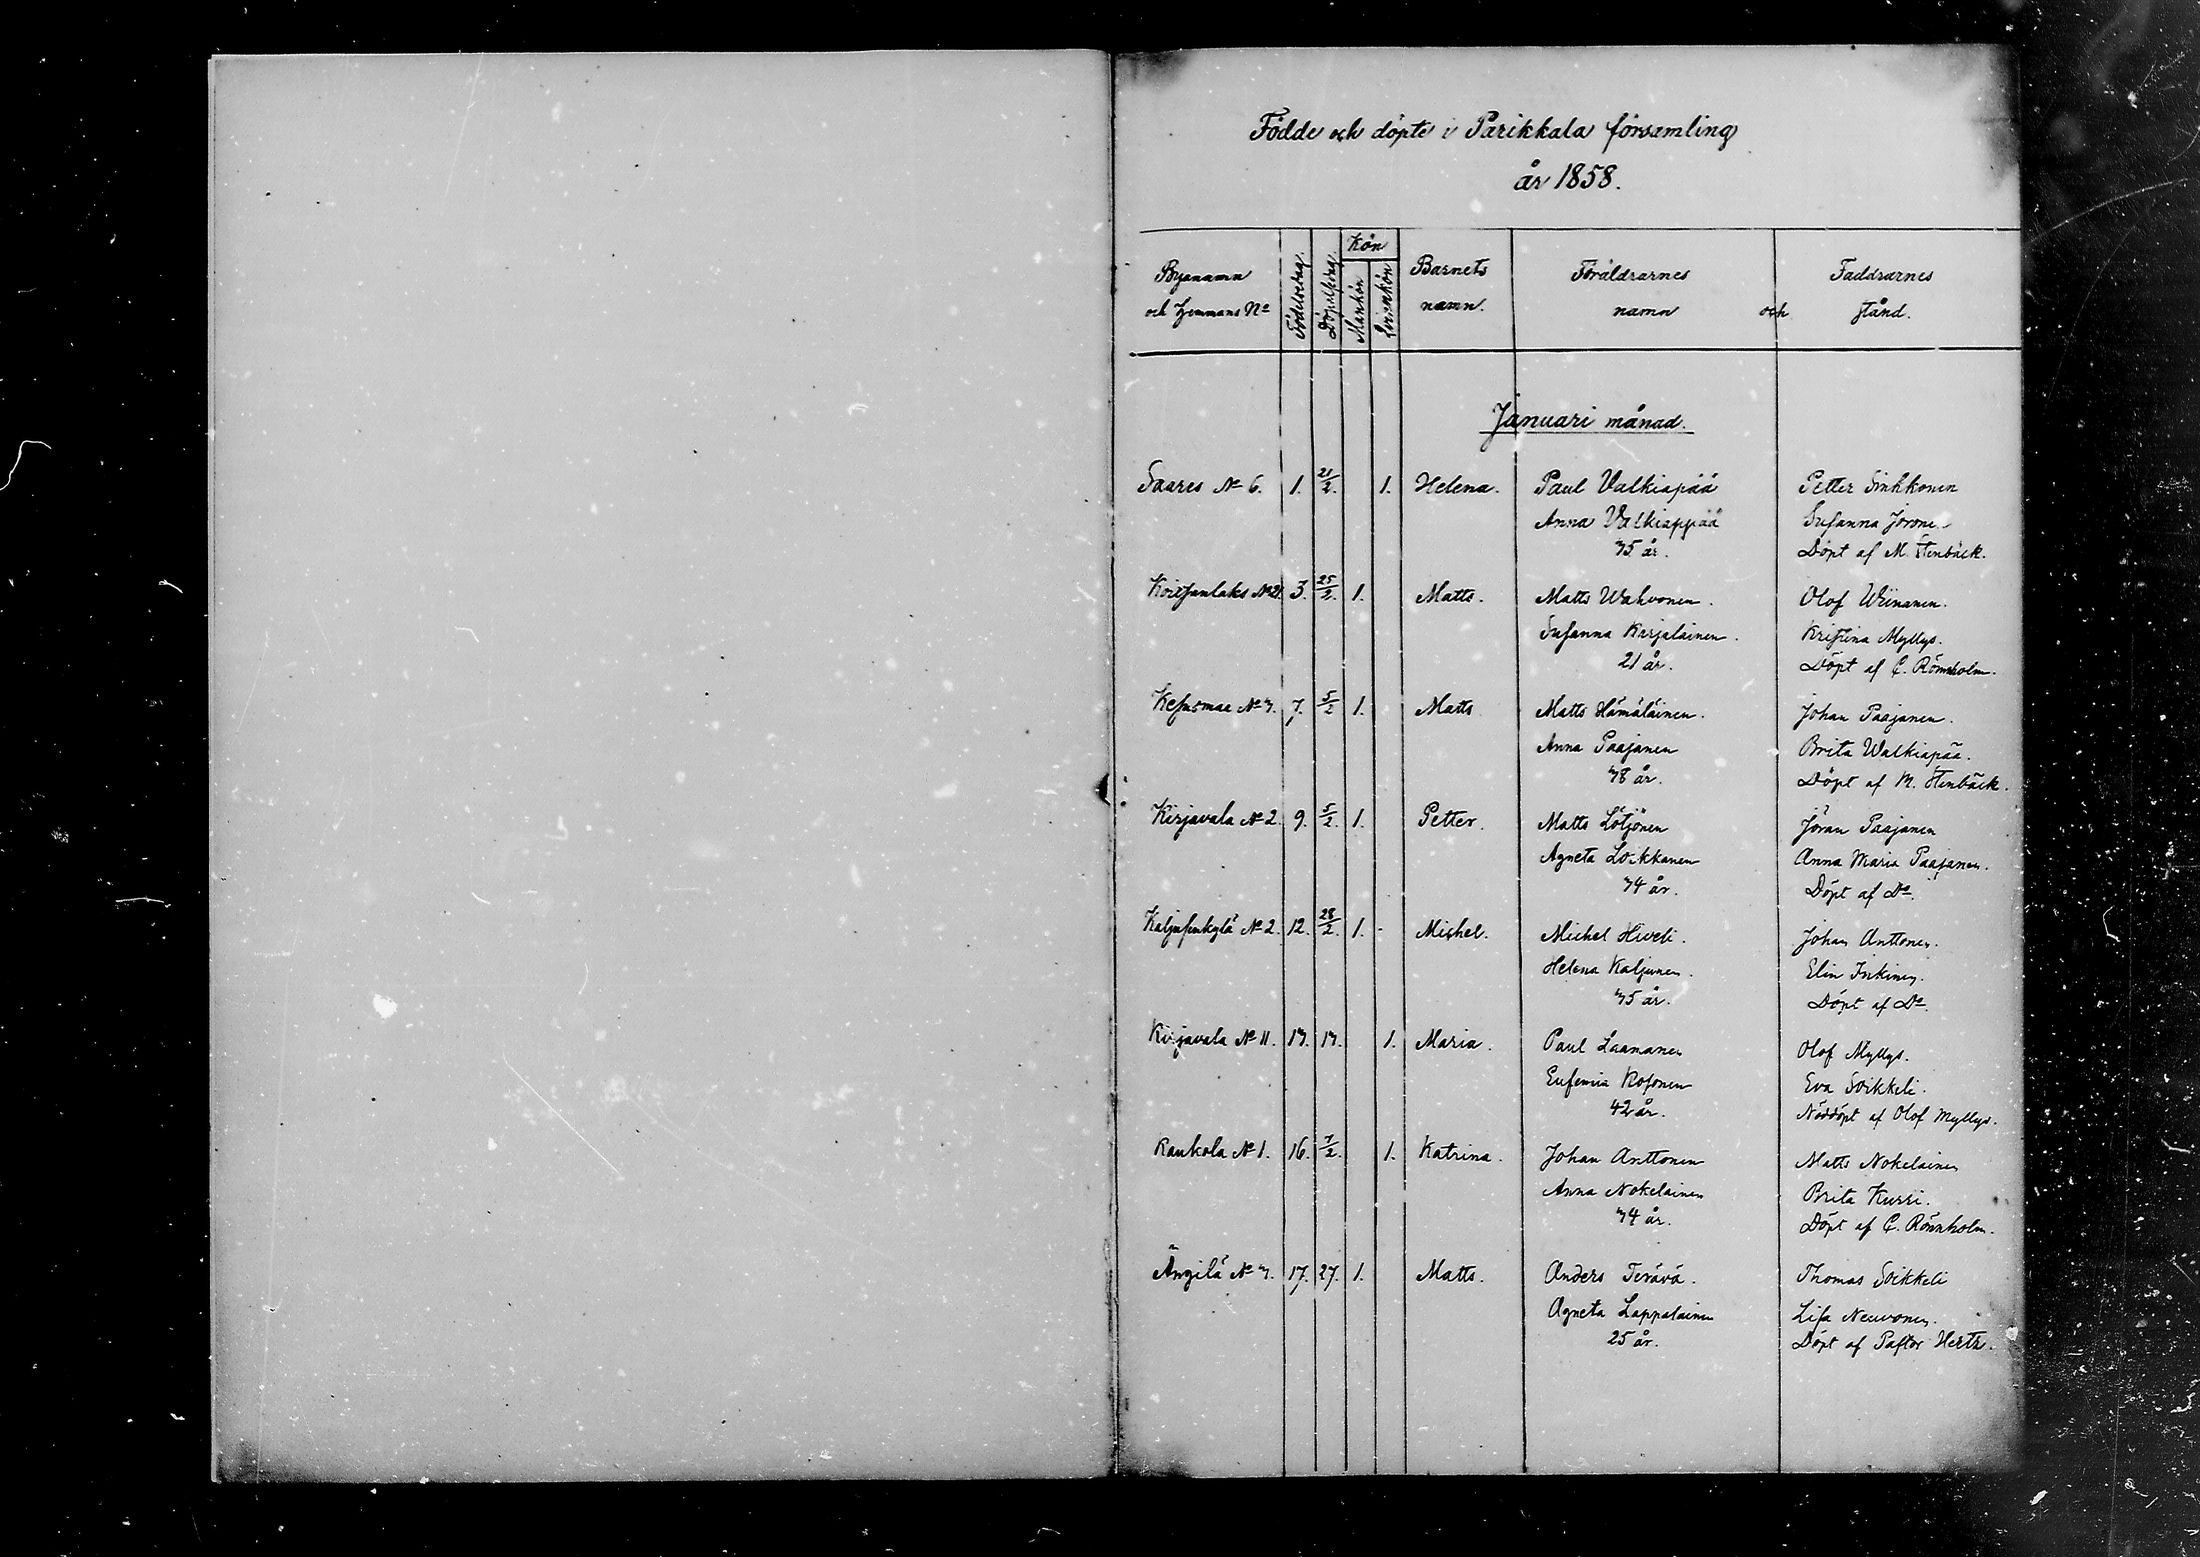 Födde och döpte i Parikkala församling
år 1858.
Byanamn och Hemmans No Födelsedag Döpelsedag Kön Mankön Qvinnkön Barnets namn. Föräldrarnes namn och Faddrarnes stånd.
Januari månad.
Saares No 6. 1. 21/2. 1. Helena. Paul Valkiapää Petter Sinkkonen
Anna Valkiappää Susanna Jorone
35 år. Döpt af M. Stenbäck.
Koitsanlaks No 21. 3. 25/2. 1. Matts. Matts Wahvonen. Olof Wiinanen.
Susanna Karjalainen. Kristina Myllys.
21 år. Döpt af C. Rönnholm.
Kesusmaa No 3. 7. 5/2 1. Matts Matts Hämäläinen. Johan Paajanen.
Anna Paajanen Brita Walkiapää.
38 år. Döpt af M. Stenbäck.
Kirjavala No 2. 9. 5/2. 1. Petter. Matts Lötjönen Jöran Paajanen
Agneta Loikkanen Anna Maria Paajanen.
34 år. Döpt af Do.
Kaljusenkylä No 2. 12. 28/2. 1. Michel. Michel Hiveli. Johan Anttonen.
Helena Kaljunen. Elin Inkinen.
35 år. Döpt af Do.
Kirjavala No 11. 13. 13. 1. Maria. Paul Laamanen Olof Myllys.
Eufemia Kosonen Eva Soikkeli.
42 år. Nöddöpt af Olof Myllys.
Raukola No 1. 16. 7/2. 1. Katrina. Johan Anttonen Matts Nokelainen
Anna Nokelainen Brita Kurri.
34 år. Döpt af C. Rönnholm.
Ängilä No 3. 17. 27. 1. Matts. Anders Terävä. Thomas Soikkeli
Agneta Lappalainen Lisa Neuvonen.
25 år. Döpt af Pastor Hertz.